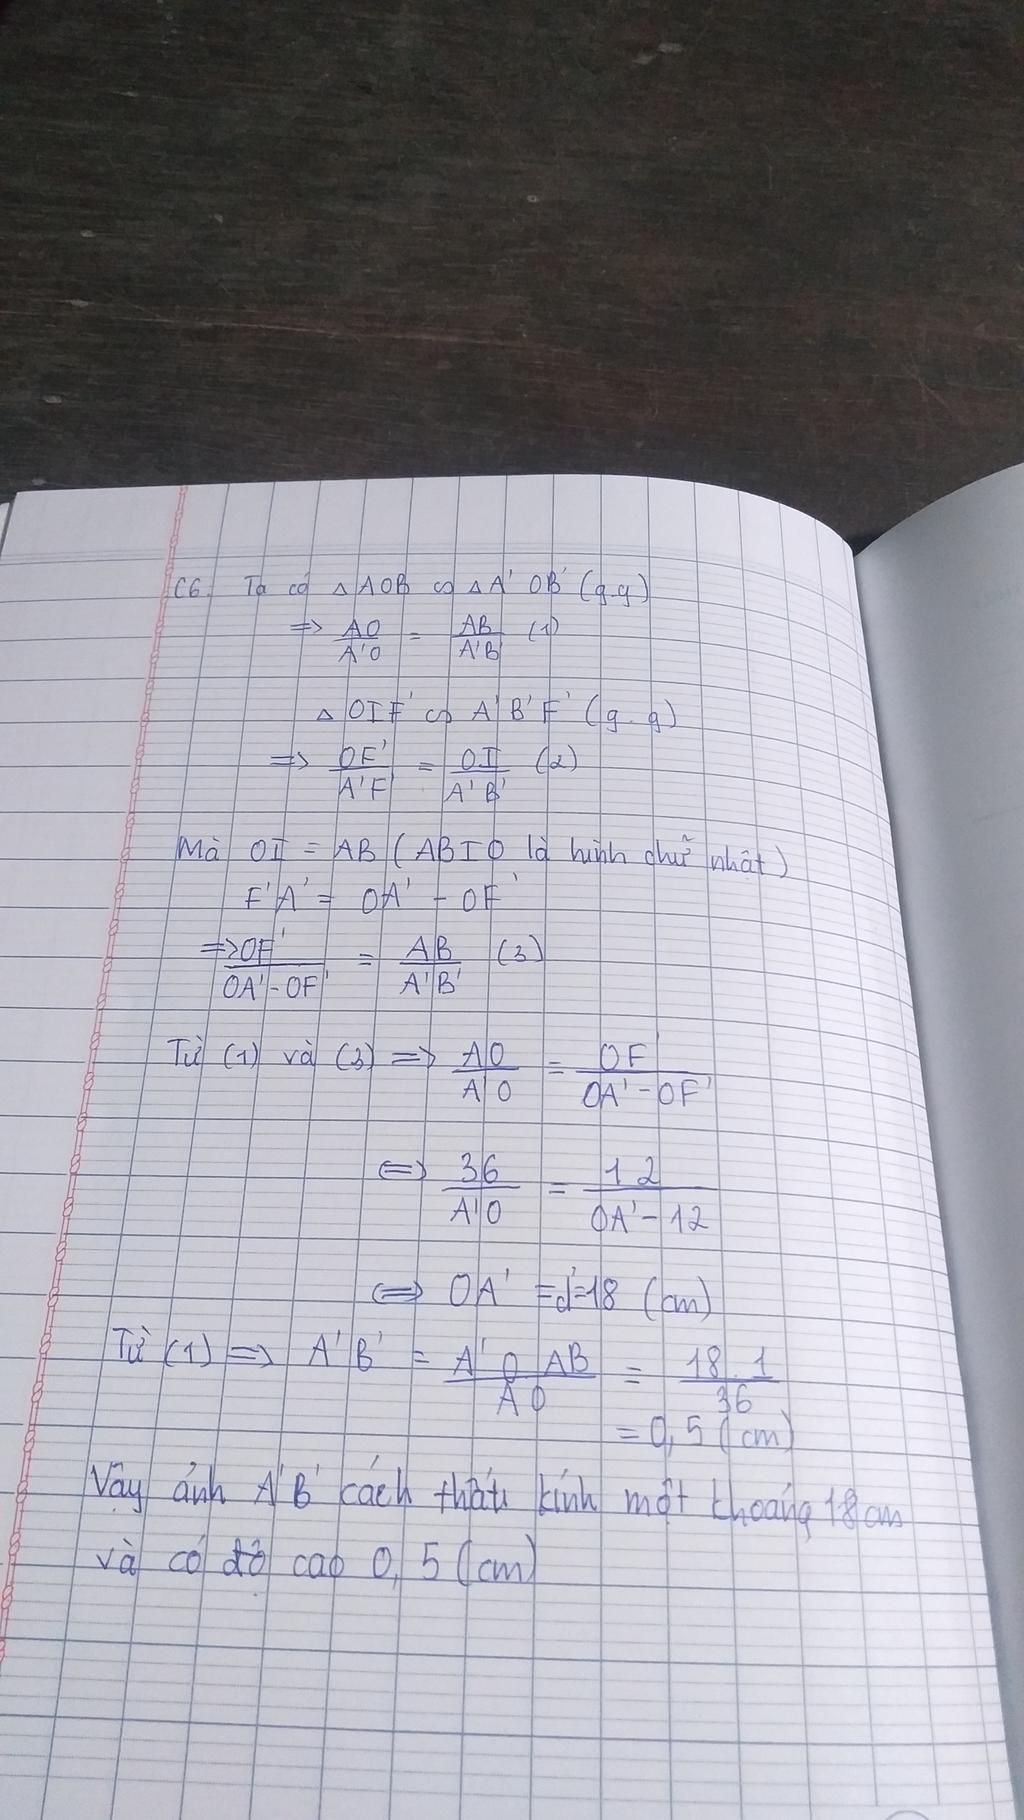 C6. Ta có △AOB ∽ △A'OB' (g.g)
=> AO/A'O = AB/A'B' (1)
△OIF' ∽ A'B'F' (g.g)
=> OF'/A'F' = OI/A'B' (2)
Mà OI = AB (ABIO là hình chữ nhật)
F'A' = OA' - OF'
=> OF'/OA'-OF' = AB/A'B' (3)
Từ (1) và (3) => AO/A'O = OF'/OA'-OF'
<=> 36/A'O = 12/OA'-12
<=> OA' = d' = 18 (cm)
Từ (1) => A'B' = A'O.AB/AO = 18.1/36
= 0,5 (cm)
Vậy ảnh A'B' cách thấu kính một khoảng 18cm
và có độ cao 0,5 (cm)